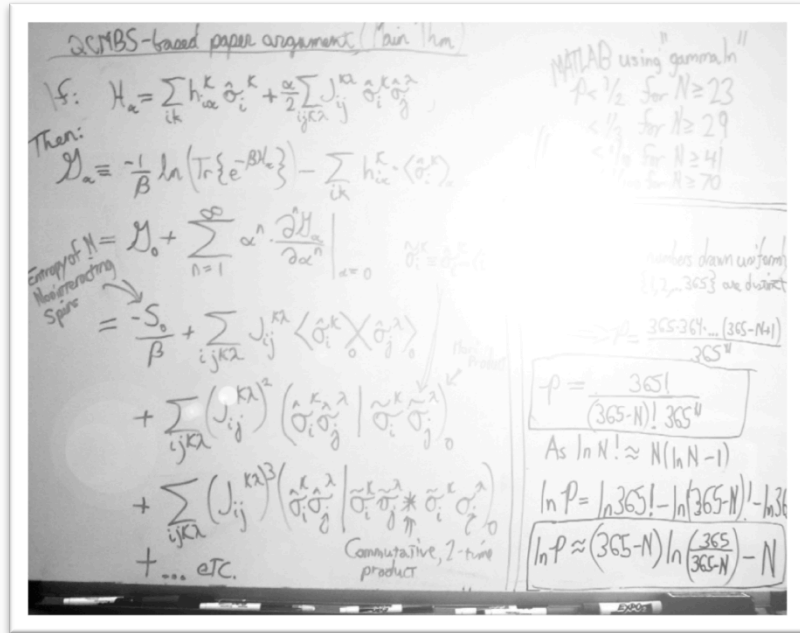 QCMBS-based paper argument (Main Thm)
If: H_α = Σ_{ik} h_{iα}^κ σ̂_i^κ + α/2 Σ_{ijκλ} J_{ij}^{κλ} σ̂_i^κ σ̂_j^λ
Then:
𝒢_α ≡ -1/β ln(Tr{e^{-βH_α}}) - Σ_{ik} h_{iα}^κ·⟨σ̂_i^κ⟩_0
= 𝒢_0 + Σ_{n=1}^∞ α^n · ∂^n𝒢_α/∂α^n |_{α=0}
Entropy of N
Noninteracting
Spins
= -S_0/β + Σ_{ijκλ} J_{ij}^{κλ} ⟨σ̂_i^κ⟩_0⟨σ̂_j^λ⟩_0
+ Σ_{ijκλ} (J_{ij}^{κλ})² (σ̂_i^κ σ̂_j^λ | σ̃_i^κ σ̃_j^λ)_0
+ Σ_{ijκλ} (J_{ij}^{κλ})³ (σ̂_i^κ σ̂_j^λ | σ̃_i^κ σ̃_j^λ * σ̃_i^κ σ̃_j^λ)_0
+ ... etc.
Commutative, 2-time
product
MATLAB using "gammaln"
P < 1/2 for N ≥ 23
< 1/3 for N ≥ 29
for N ≥ 41
for N ≥ 70
numbers drawn uniform
365} are distinct
P = 365·364·...(365-N+1)/365^N
P = 365!/((365-N)! 365^N)
As ln N! ≈ N(ln N-1)
ln P = ln 365! - ln(365-N)! - ln 36
ln P ≈ (365-N) ln(365/(365-N)) - N
EXPO